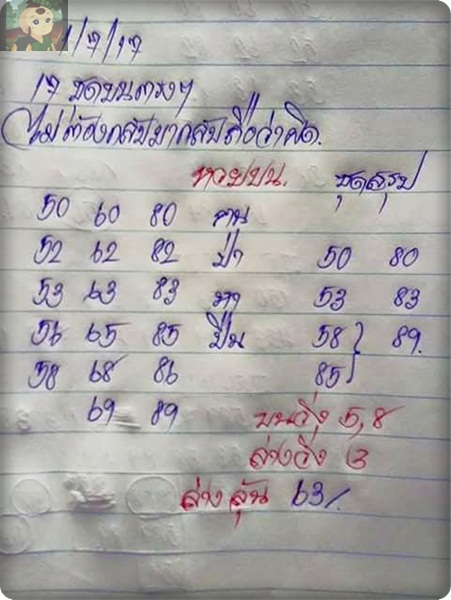 1/7/17
17 ชุดบนตรงๆ
ไม่ต้องกลับมากลับถือว่าผิด.
หวยบน. ชุดสรุป
50 60 80 คน
52 62 82 ป่า 50 80
53 63 83 มา 53 83
56 65 85 ปืน 58 } 89.
58 68 86 85
69 89 บนวิ่ง 5,8
ล่างวิ่ง 3
ล่าง ลุ้น 63/.